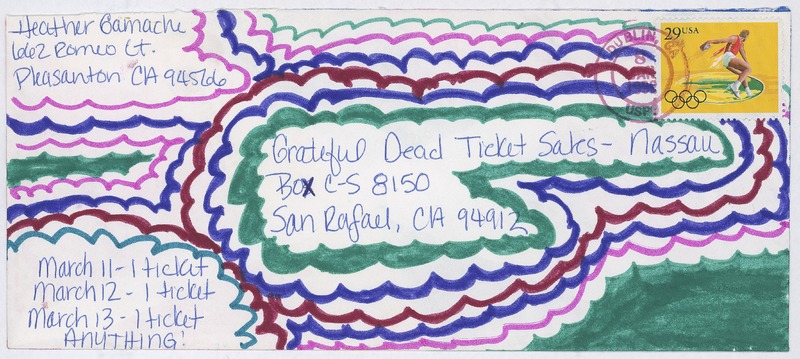 Heather Gamache
662 Romeo Ct.
Pleasanton CA 94566
29 USA
DUBLIN, CA
USPS
Grateful Dead Ticket Sales - Nassau
Box C-S 8150
San Rafael, CA 94912
March 11 - 1 ticket
March 12 - 1 ticket
March 13 - 1 ticket
ANYTHING!